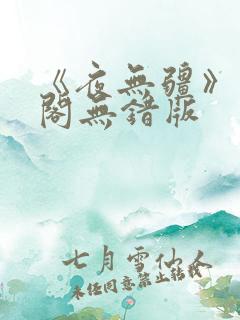 《夜無疆》
閣無錯版
七月雪仙人
未経同意禁止轉載